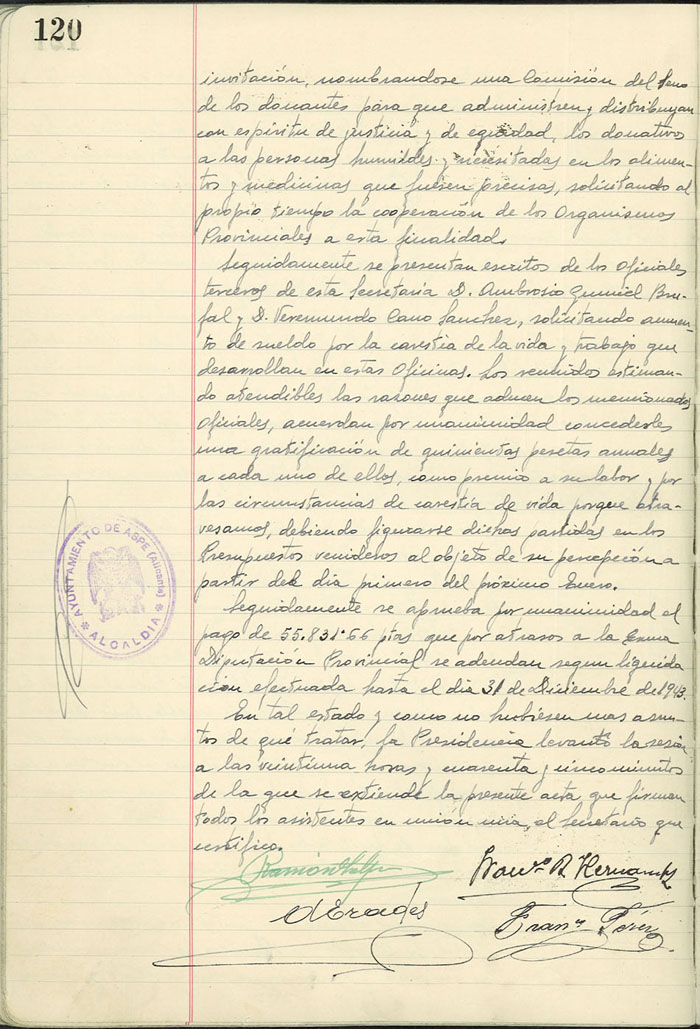 120
invitación, nombrandose una Comisión del seno
de los donantes para que administren y distribuyan
con espiritu de justicia y de equidad, los donativos
a las personas humildes y necesitadas en los alimen-
tos y medicinas que fuesen precisas, solicitando al
propio tiempo la cooperación de los Organismos
Provinciales a esta finalidad.
Seguidamente se presentan escritos de los Oficiales
terceros de esta Secretaria D. Ambrosio Gumiel Bru-
fal y D. Veremundo Cano Sanchez, solicitando aumen-
to de sueldo por la carestia de la vida y trabajo que
desarrollan en estas Oficinas. Los reunidos estiman-
do atendibles las razones que aducen los mencionados
Oficiales, acuerdan por unanimidad concederles
una gratificación de quinientas pesetas anuales
a cada uno de ellos, como premio a su labor y por
las circunstancias de carestia de vida porque atra-
vesamos, debiendo figurarse dichas partidas en los
Presupuestos venideros al objeto de su percepción a
partir del dia primero del próximo Enero.
Seguidamente se aprueba por unanimidad el
pago de 55.831'66 ptas que por atrasos a la Exma
Diputación Provincial se adeudan segun liquida
ción efectuada hasta el dia 31 de Diciembre de 1943.
En tal estado y como no hubiesen mas asun-
tos de qué tratar, la Presidencia levantó la sesión
a las veintiuna horas y cuarenta y cinco minutos
de la que se extiende la presente acta que firman
todos los asistentes en unión mia, el Secretario que
certifico.
AYUNTAMIENTO DE ASPE (Alicante)
ALCALDIA
Ramón
R. Hernandez
Erades
Fran. Pérez